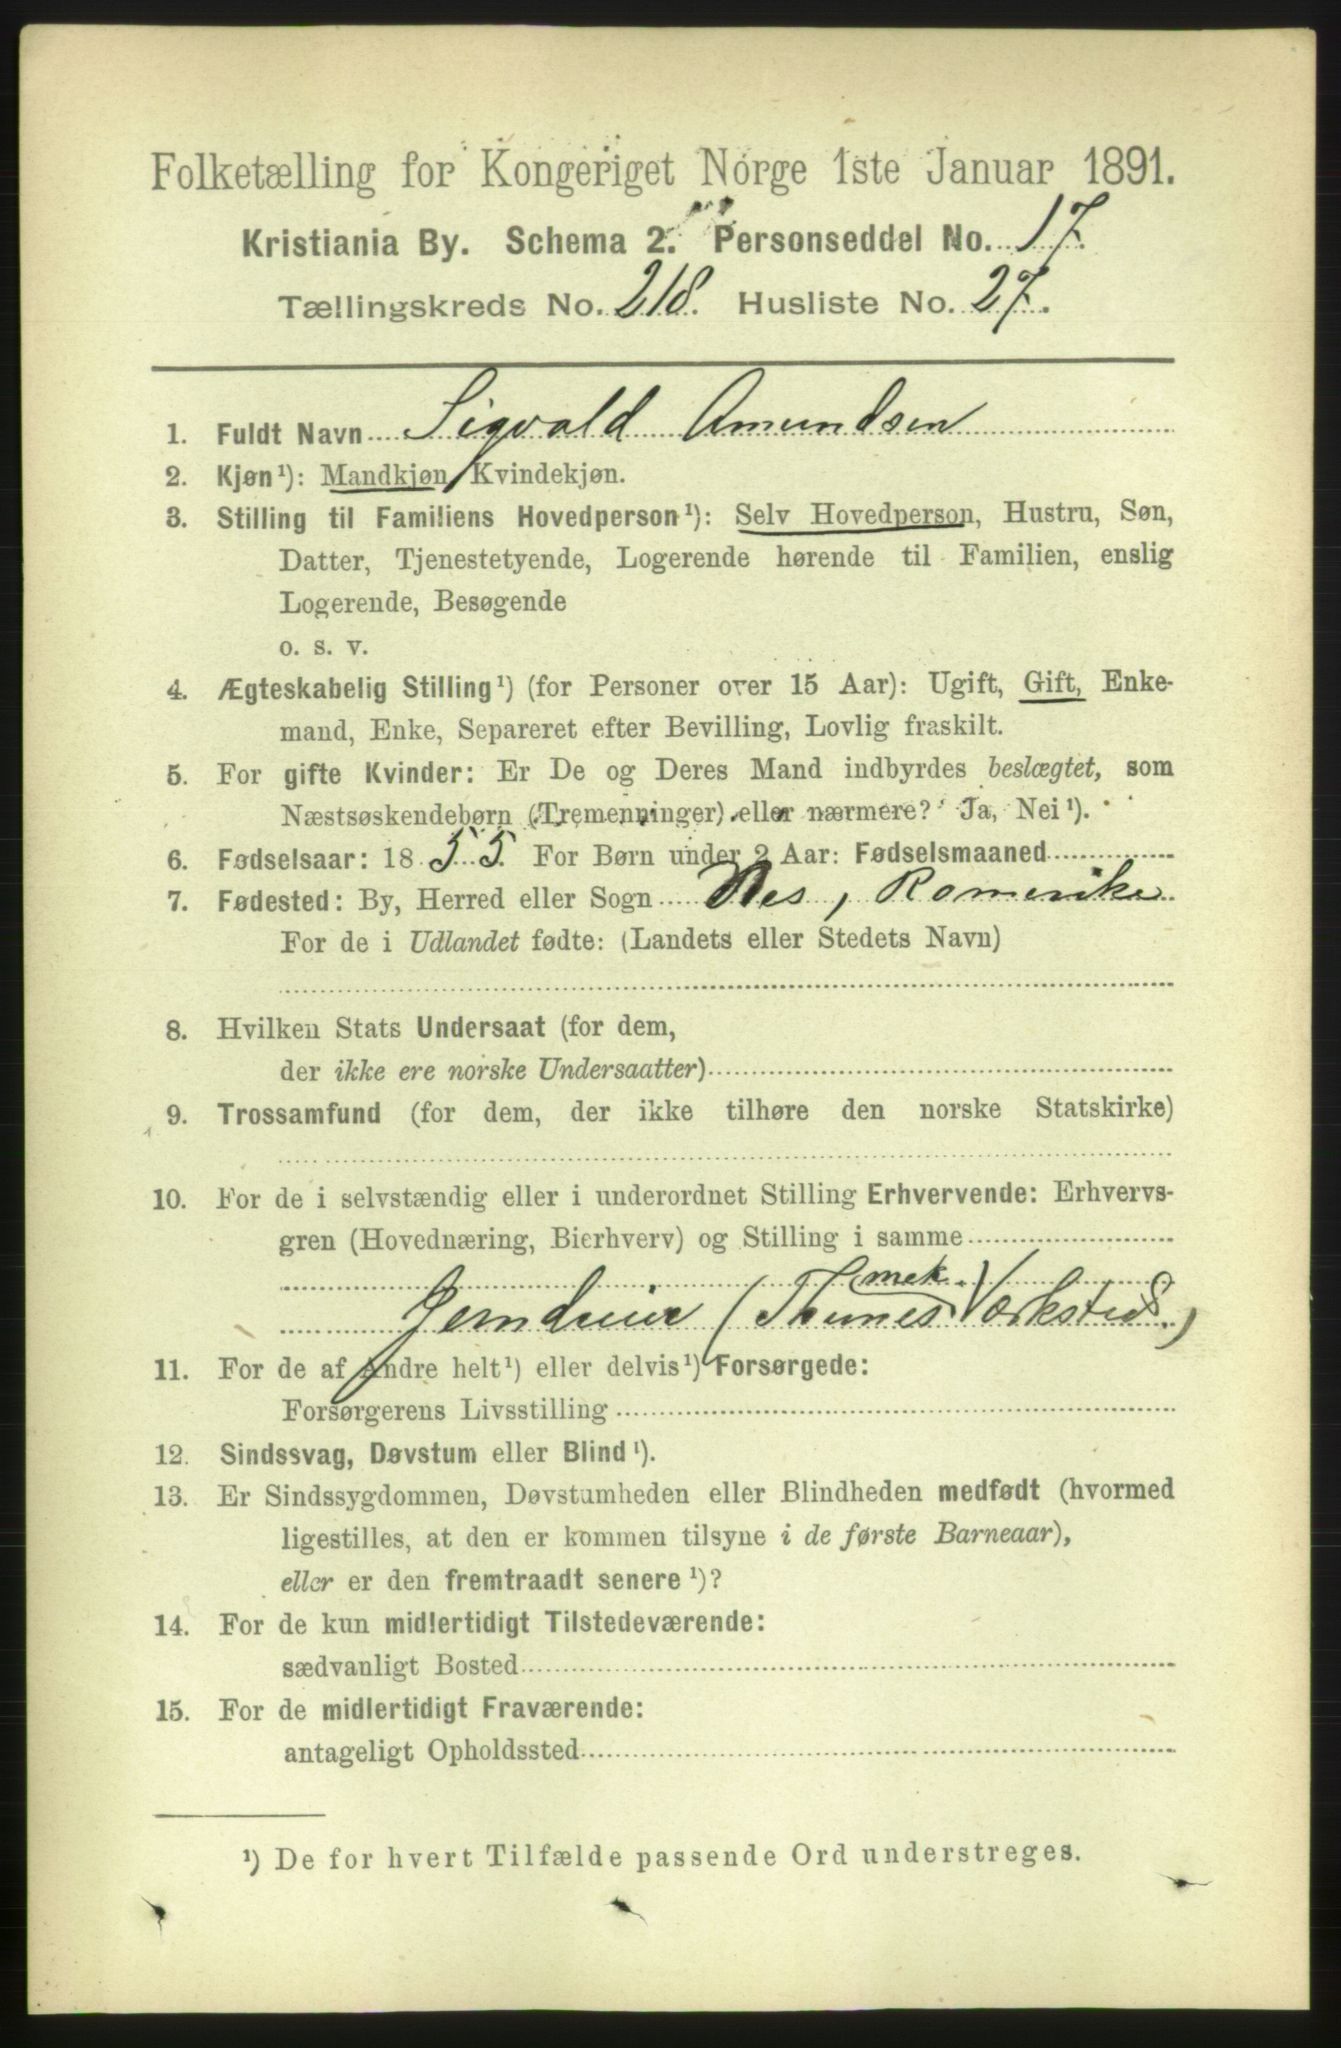 Folketælling for Kongeriget Norge 1ste Januar 1891.
Kristiania By. Schema 2. Personseddel No. 17.
Tællingskreds No. 218. Husliste No. 27.
1. Fuldt Navn Sigvald Amundsen
2. Kjøn¹): Mandkjøn, Kvindekjøn.
3. Stilling til Familiens Hovedperson¹): Selv Hovedperson, Hustru, Søn,
Datter, Tjenestetyende, Logerende hørende til Familien, enslig
Logerende, Besøgende
o. s. v.
4. Ægteskabelig Stilling¹) (for Personer over 15 Aar): Ugift, Gift, Enke-
mand, Enke, Separeret efter Bevilling, Lovlig fraskilt.
5. For gifte Kvinder: Er De og Deres Mand indbyrdes beslægtet, som
Næstsøskendebørn (Tremenninger) eller nærmere? Ja, Nei¹).
6. Fødselsaar: 1855. For Børn under 2 Aar: Fødselsmaaned
7. Fødested: By, Herred eller Sogn Nes, Romerike
For de i Udlandet fødte: (Landets eller Stedets Navn)
8. Hvilken Stats Undersaat (for dem,
der ikke ere norske Undersaatter)
9. Trossamfund (for dem, der ikke tilhøre den norske Statskirke)
10. For de i selvstændig eller i underordnet Stilling Erhvervende: Erhvervs-
gren (Hovednæring, Bierhverv) og Stilling i samme
mek.
Jerndreier (Thunes Værksted.)
11. For de af Andre helt¹) eller delvis¹) Forsørgede:
Forsørgerens Livsstilling
12. Sindssvag, Døvstum eller Blind¹).
13. Er Sindssygdommen, Døvstumheden eller Blindheden medfødt (hvormed
ligestilles, at den er kommen tilsyne i de første Barneaar),
eller er den fremtraadt senere¹)?
14. For de kun midlertidigt Tilstedeværende:
sædvanligt Bosted
15. For de midlertidigt Fraværende:
antageligt Opholdssted
¹) De for hvert Tilfælde passende Ord understreges.